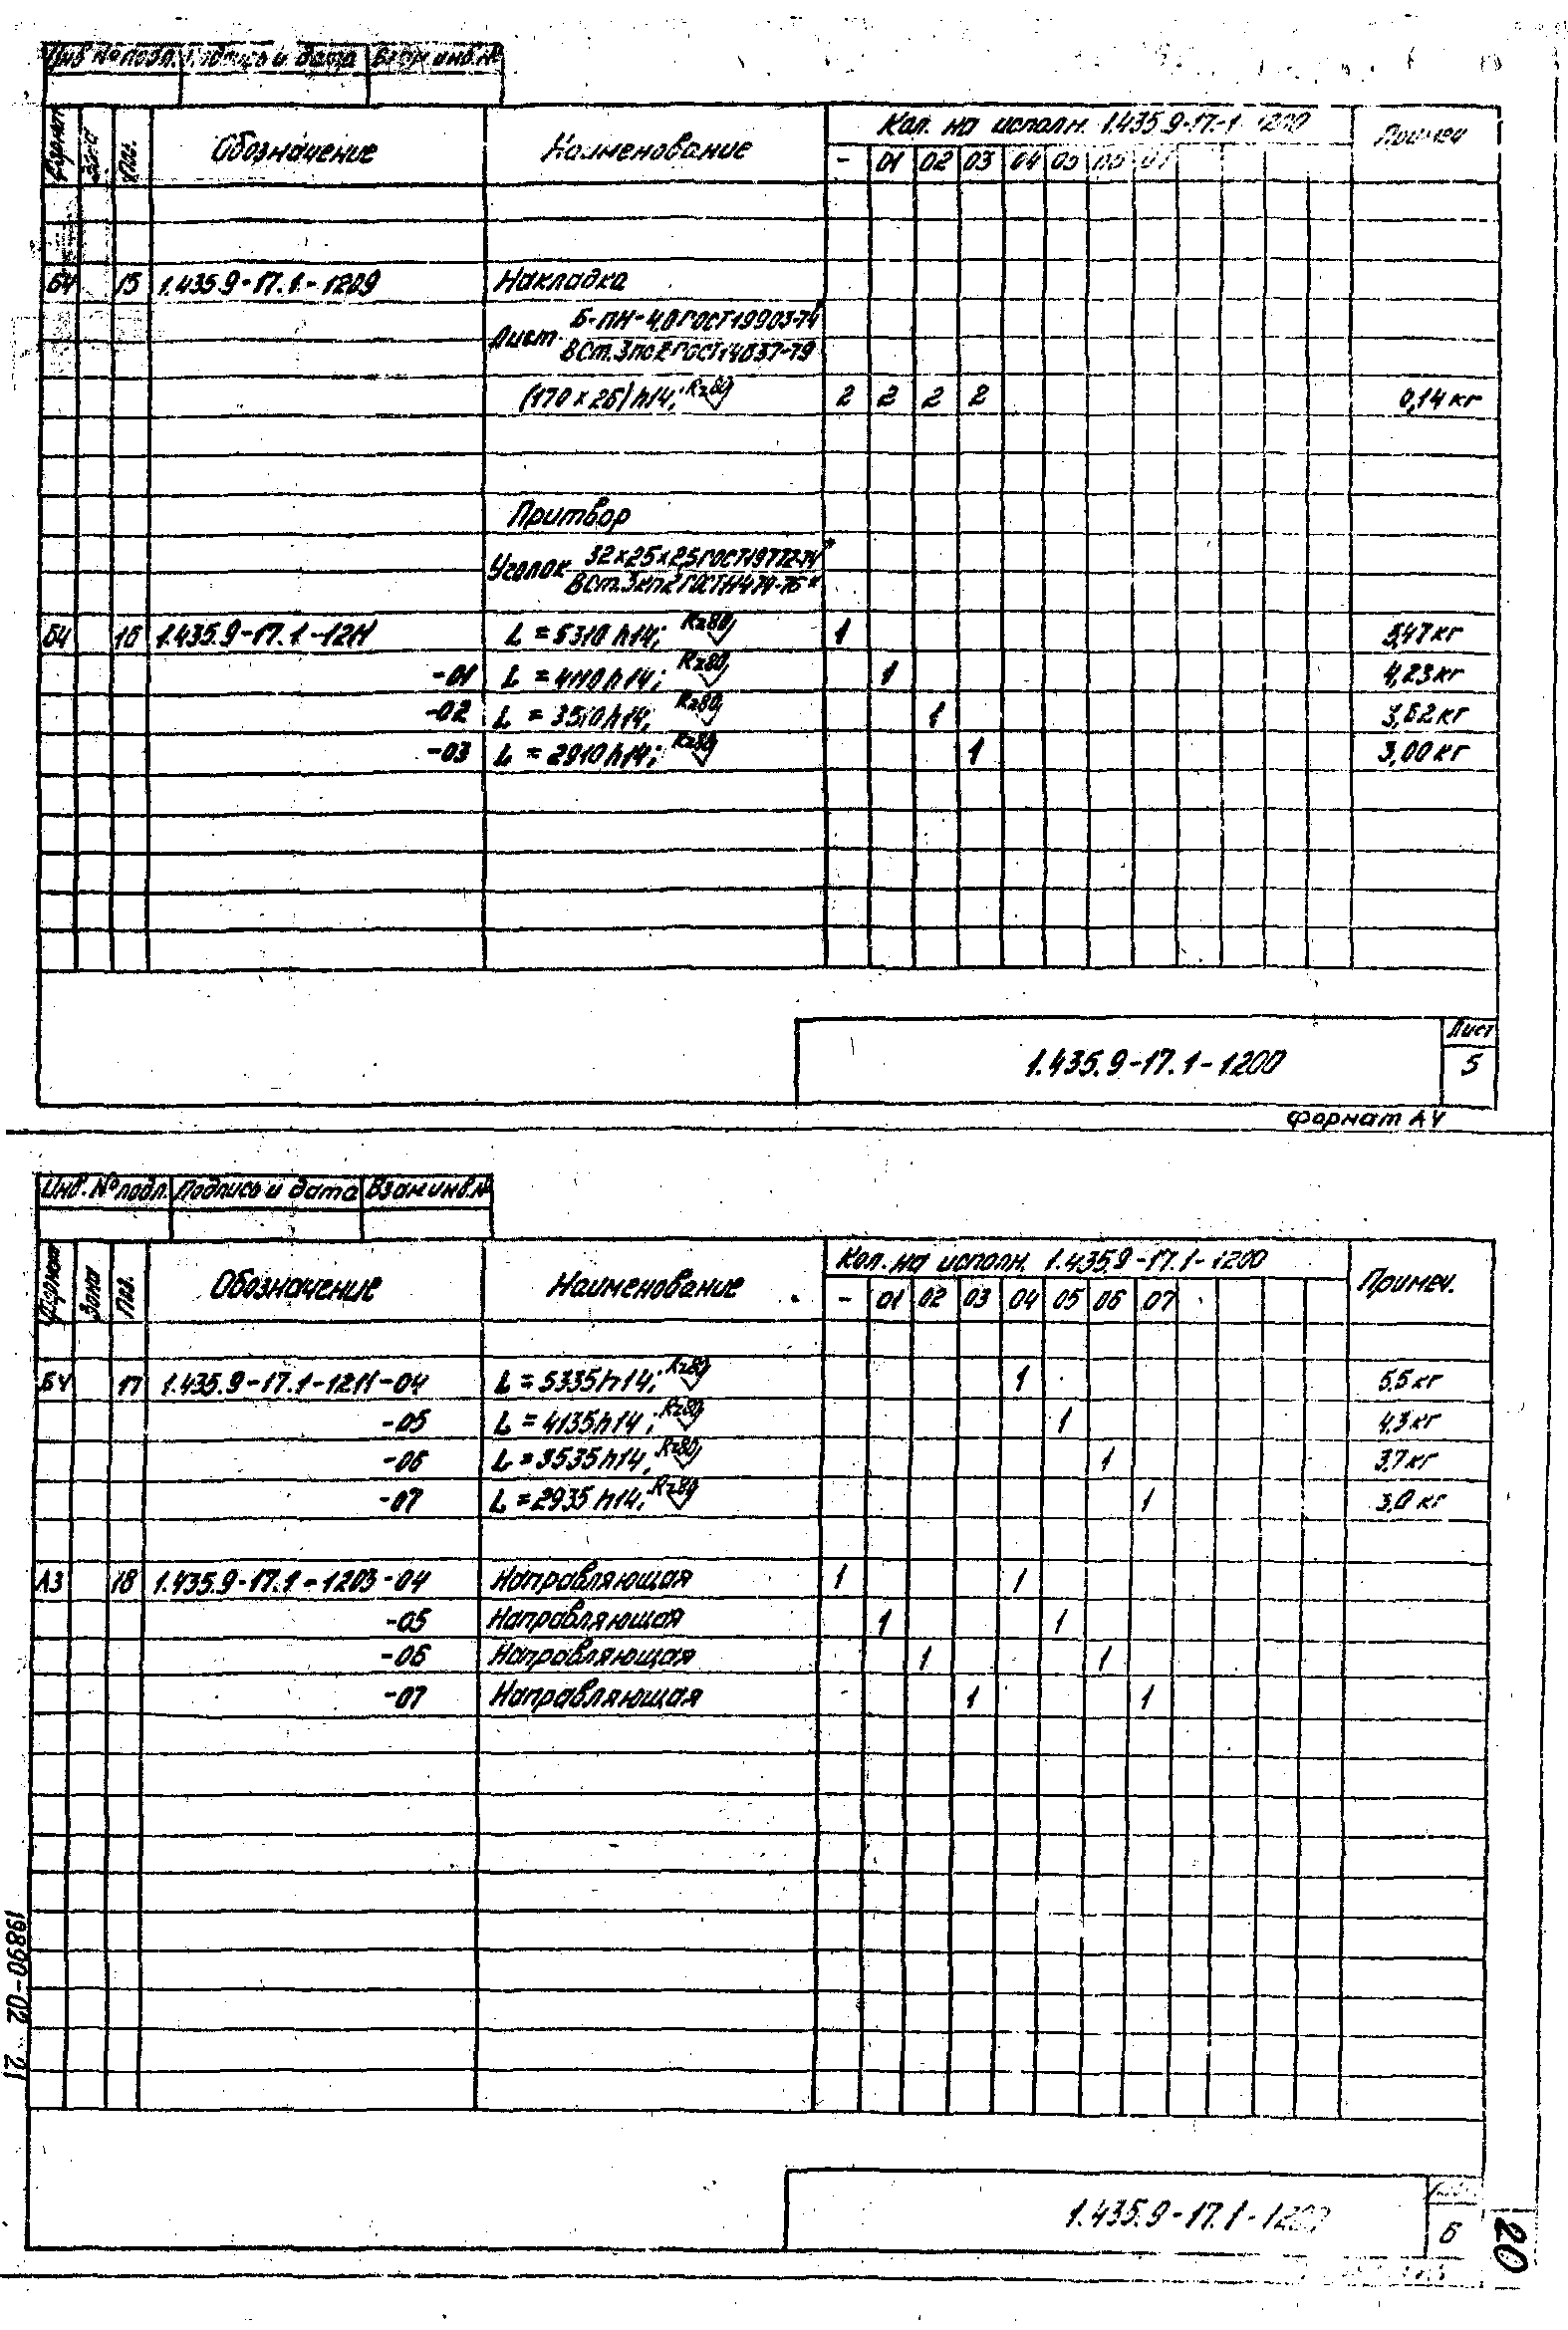 Инв № подл. Подпись и дата Взам инв. №
Формат Зона Поз. Обозначение Наименование Кол. на исполн. 1.435.9-17.1-1200 Примеч
- 01 02 03 04 05 06 07
БЧ 15 1.435.9-17.1-1209 Накладка
Лист Б-ПН-4,0 ГОСТ 19903-74*
ВСт.3пс2 ГОСТ 14637-79
(170×26)h14; Rz80 2 2 2 2 0,14 кг
Притвор
Уголок 32×25×2,5 ГОСТ 19772-74*
ВСт.3кп2 ГОСТ 11474-76*
БЧ 16 1.435.9-17.1-1211 L = 5310 h14; Rz80 1 5,47 кг
-01 L = 4110 h14; Rz80 1 4,23 кг
-02 L = 3510 h14; Rz80 1 3,62 кг
-03 L = 2910 h14; Rz80 1 3,00 кг
1.435.9-17.1-1200 Лист
5
Формат А4
Инв. № подл. Подпись и дата Взам инв. №
Формат Зона Поз. Обозначение Наименование Кол. на исполн. 1.435.9-17.1-1200 Примеч.
- 01 02 03 04 05 06 07
БЧ 17 1.435.9-17.1-1211-04 L = 5335 h14; Rz80 1 5,5 кг
-05 L = 4135 h14; Rz80 1 4,3 кг
-06 L = 3535 h14, Rz80 1 3,7 кг
-07 L = 2935 h14; Rz80 1 3,0 кг
А3 18 1.435.9-17.1-1203-04 Направляющая 1 1
-05 Направляющая 1 1
-06 Направляющая 1 1
-07 Направляющая 1 1
19890-02 21
1.435.9-17.1-1200
6
20